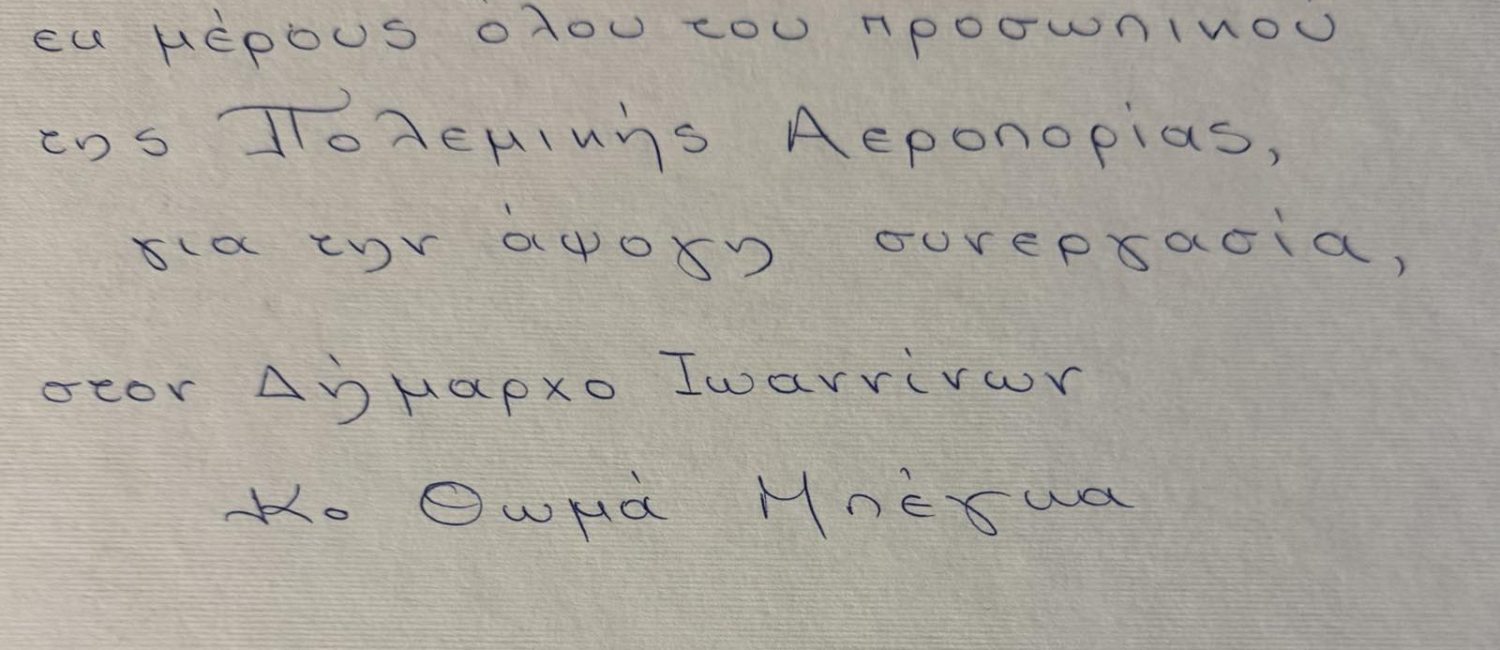 εκ μέρους όλου του προσωπικού
της Πολεμικής Αεροπορίας,
για την άψογη συνεργασία,
στον Δήμαρχο Ιωαννίνων
Κο Θωμά Μπέγκα